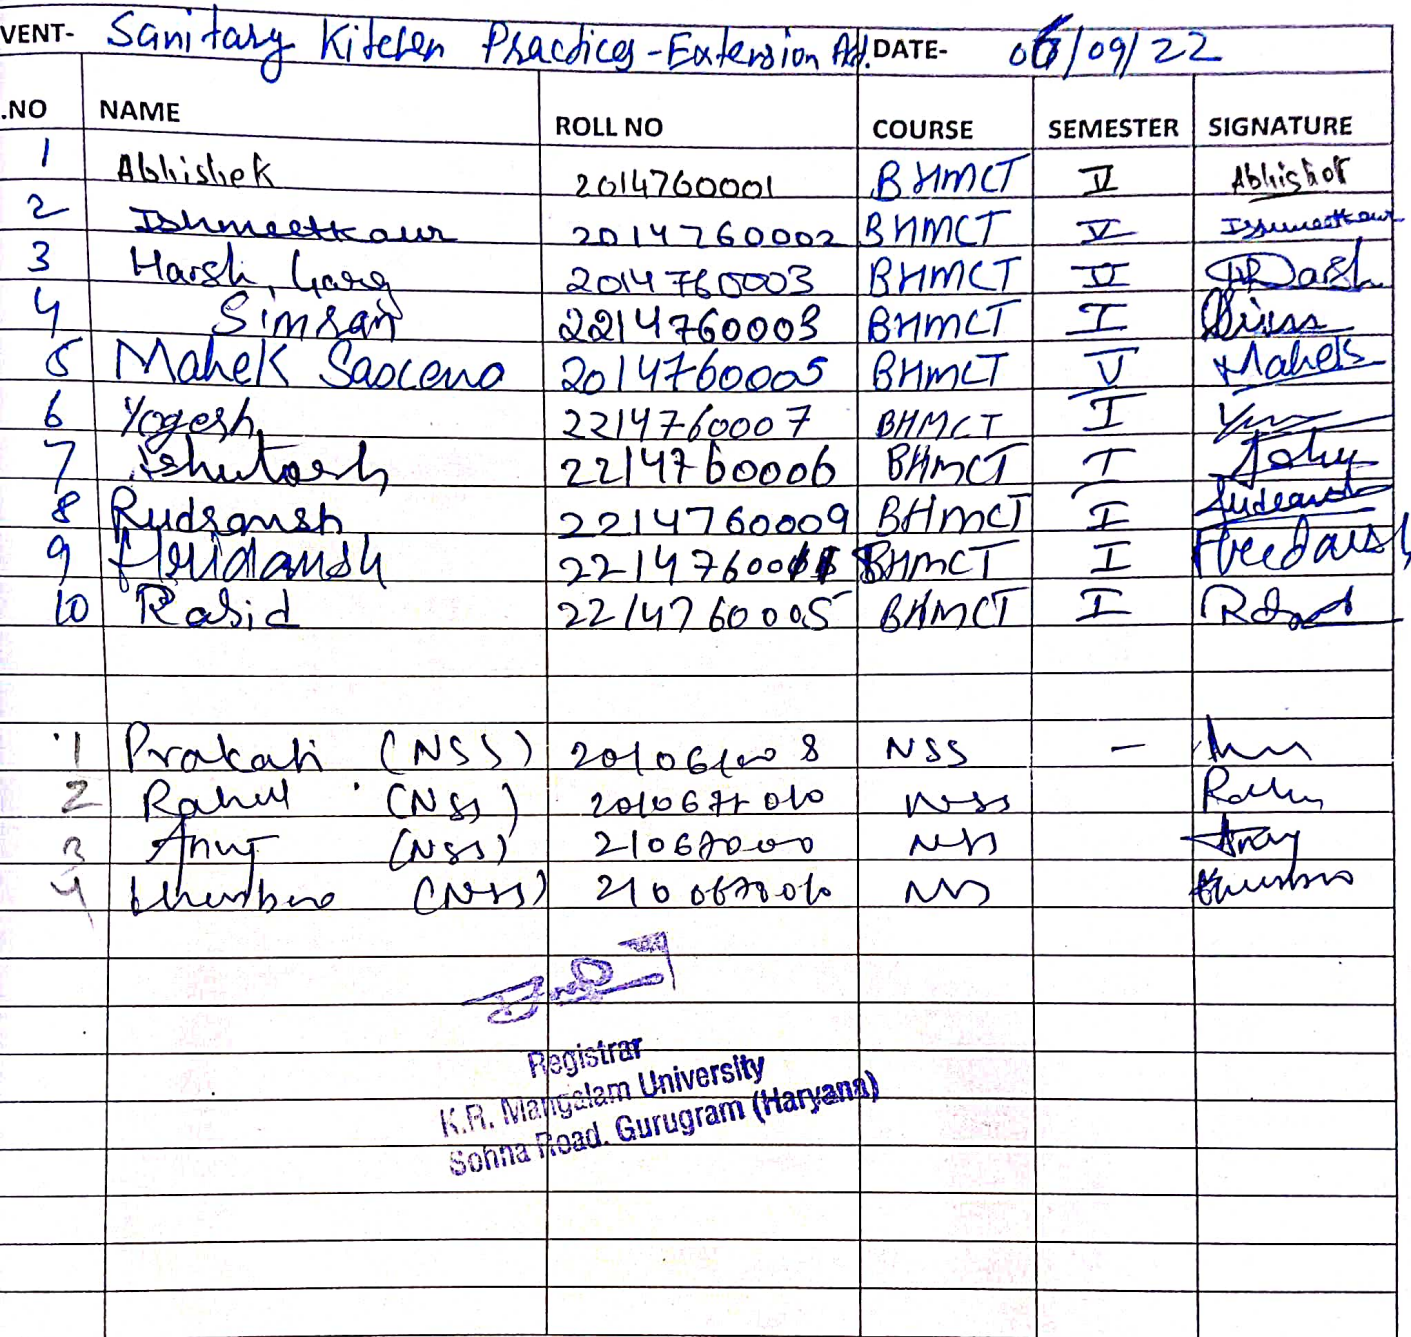 VENT- Sanitary Kitchen Practices - Extension Act. DATE- 06/09/22
.NO NAME ROLL NO COURSE SEMESTER SIGNATURE
1 Abhishek 2014760001 BHMCT V Abhishek
2 Ishmeetkaur 2014760002 BHMCT V Ishmeetkaur
3 Harsh Garg 2014760003 BHMCT V
4 Simran 2214760003 BHMCT I
5 Mahek Saxena 2014760005 BHMCT V Mahek
6 Yogesh 2214760007 BHMCT I
7 Ashutosh 2214760006 BHMCT I
8 Rudransh 2214760009 BHMCT I Rudransh
9 Hridansh BHMCT I
10 Rasid 2214760005 BHMCT I
1 Prakati (NSS) NSS –
2 Rahul (NSS) NSS
3 Anuj (NSS) NSS
4 Khushboo (NSS) NSS
Registrar
K.R. Mangalam University
Sohna Road. Gurugram (Haryana)